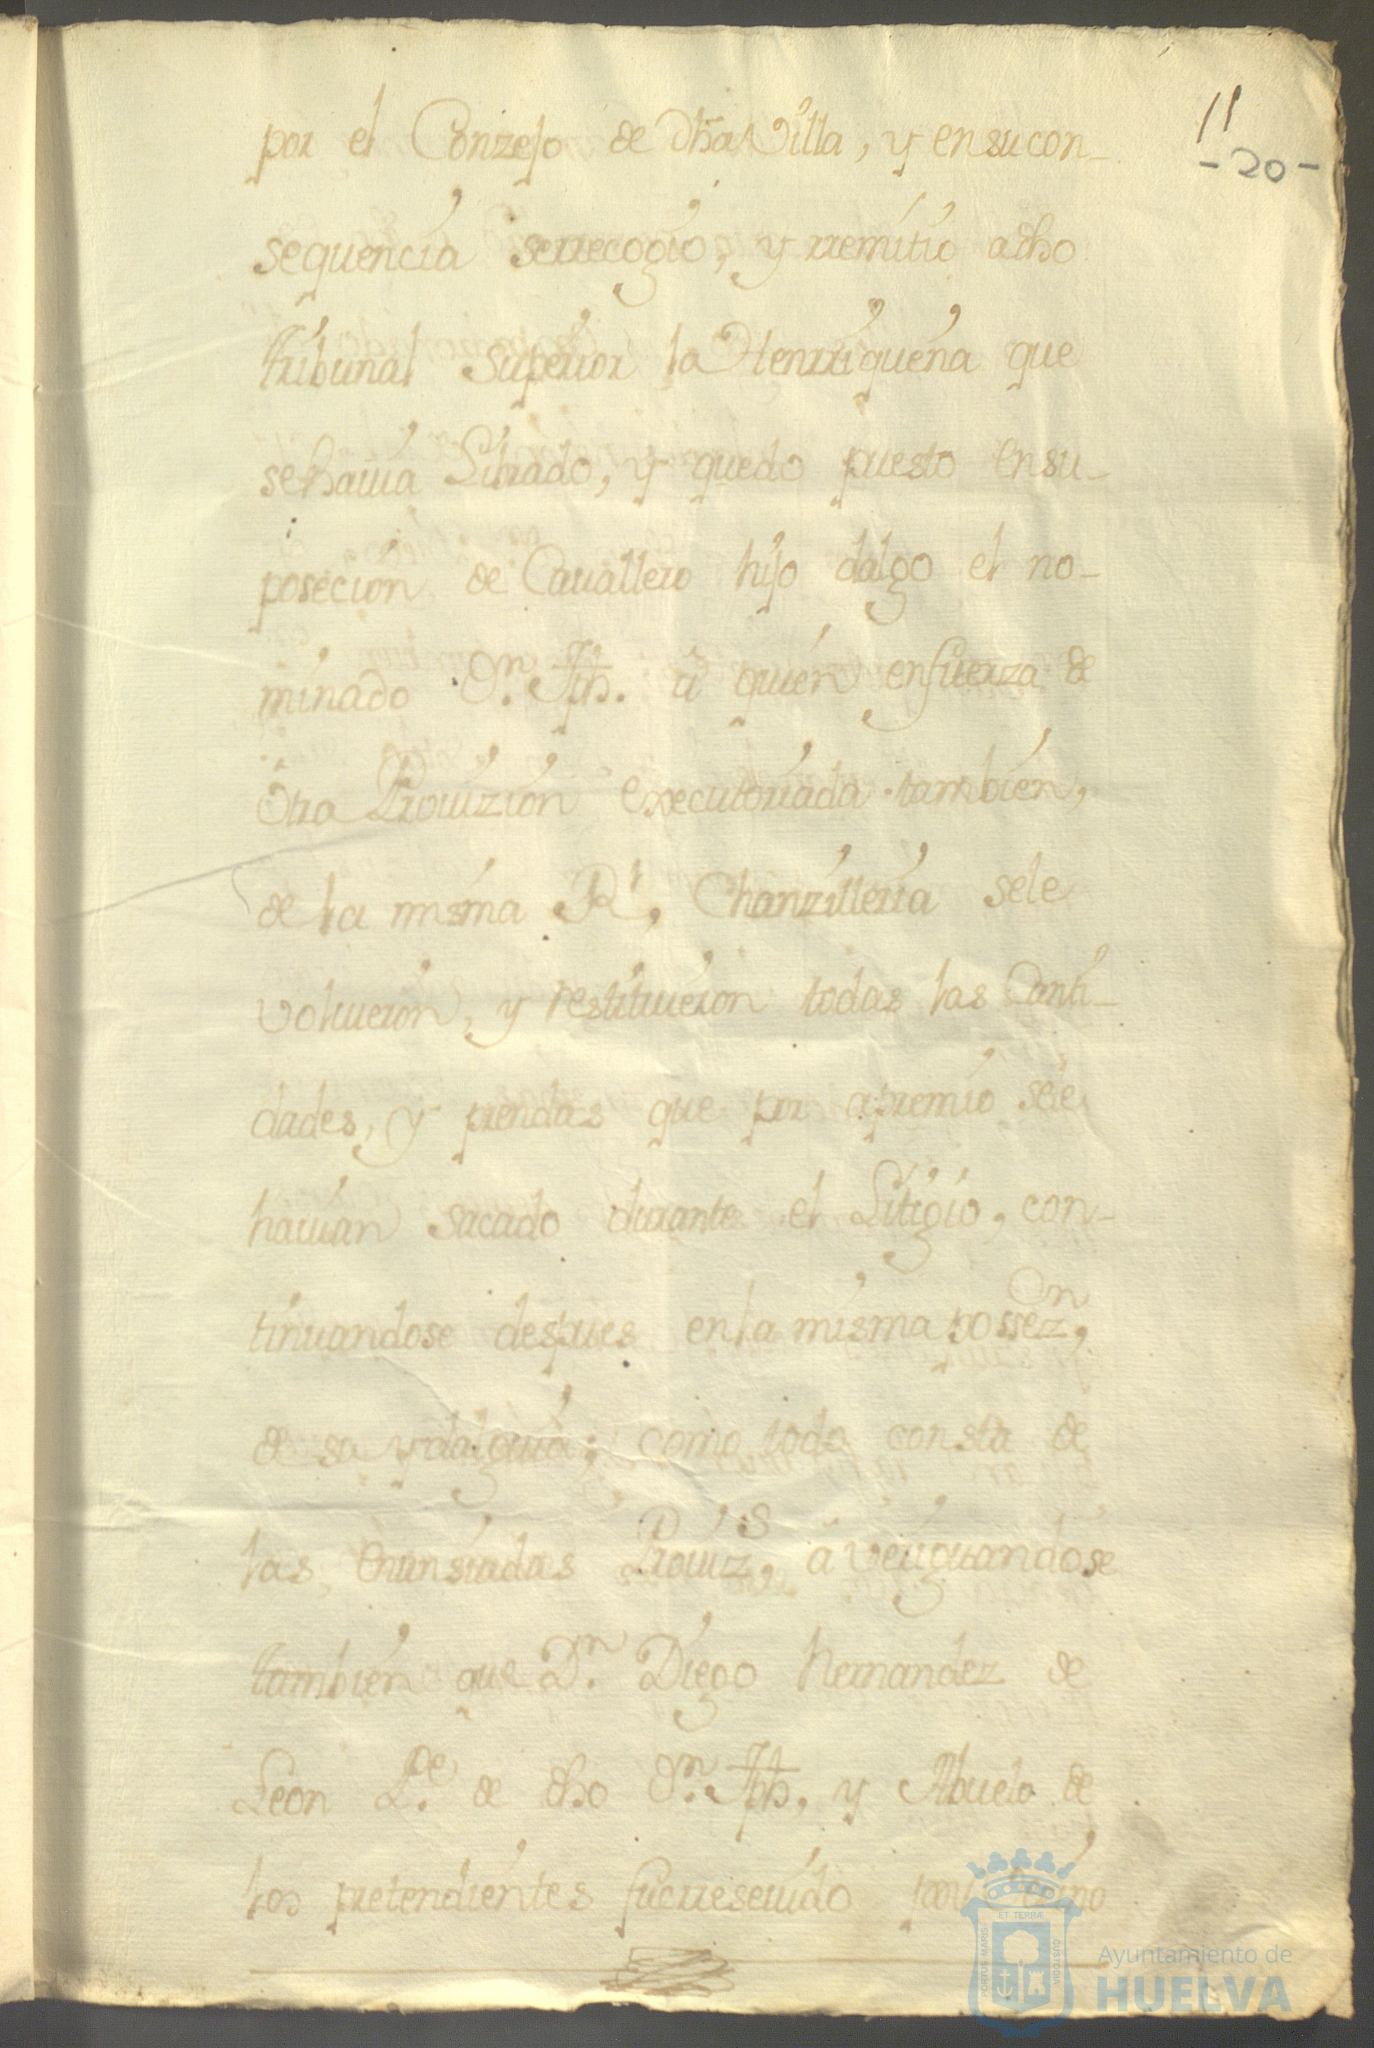 11
-20-
por el Conzejo de dha Villa, y en su con-
sequencia se rrecogio, y rremitio a dho
tribunal superior la Henrriqueña que
se hauia Librado, y quedo puesto en su-
posecion de Cauallero hijo dalgo el no-
minado Dn. Jph. a quien en fuerza de
otra Prouizion executoriada tambien,
de la misma Rl, Chanzilleria se le
voluieron, y restituieron todas las Canti-
dades, y prendas que por apremio se le
hauian sacado durante el Litigio, con-
tinuandose despues en la misma possezon,
de sa ydalguia; como todo consta de
las enunsiadas Prouizs, aueriguandose
tambien que Dn. Diego Hernandez de
Leon Pe. de dho Dn. Jph, y Abuelo de
los pretendientes fue rreseuido por
PORTUS MARIS ET TERRÆ CUSTODIA
Ayuntamiento de
HUELVA